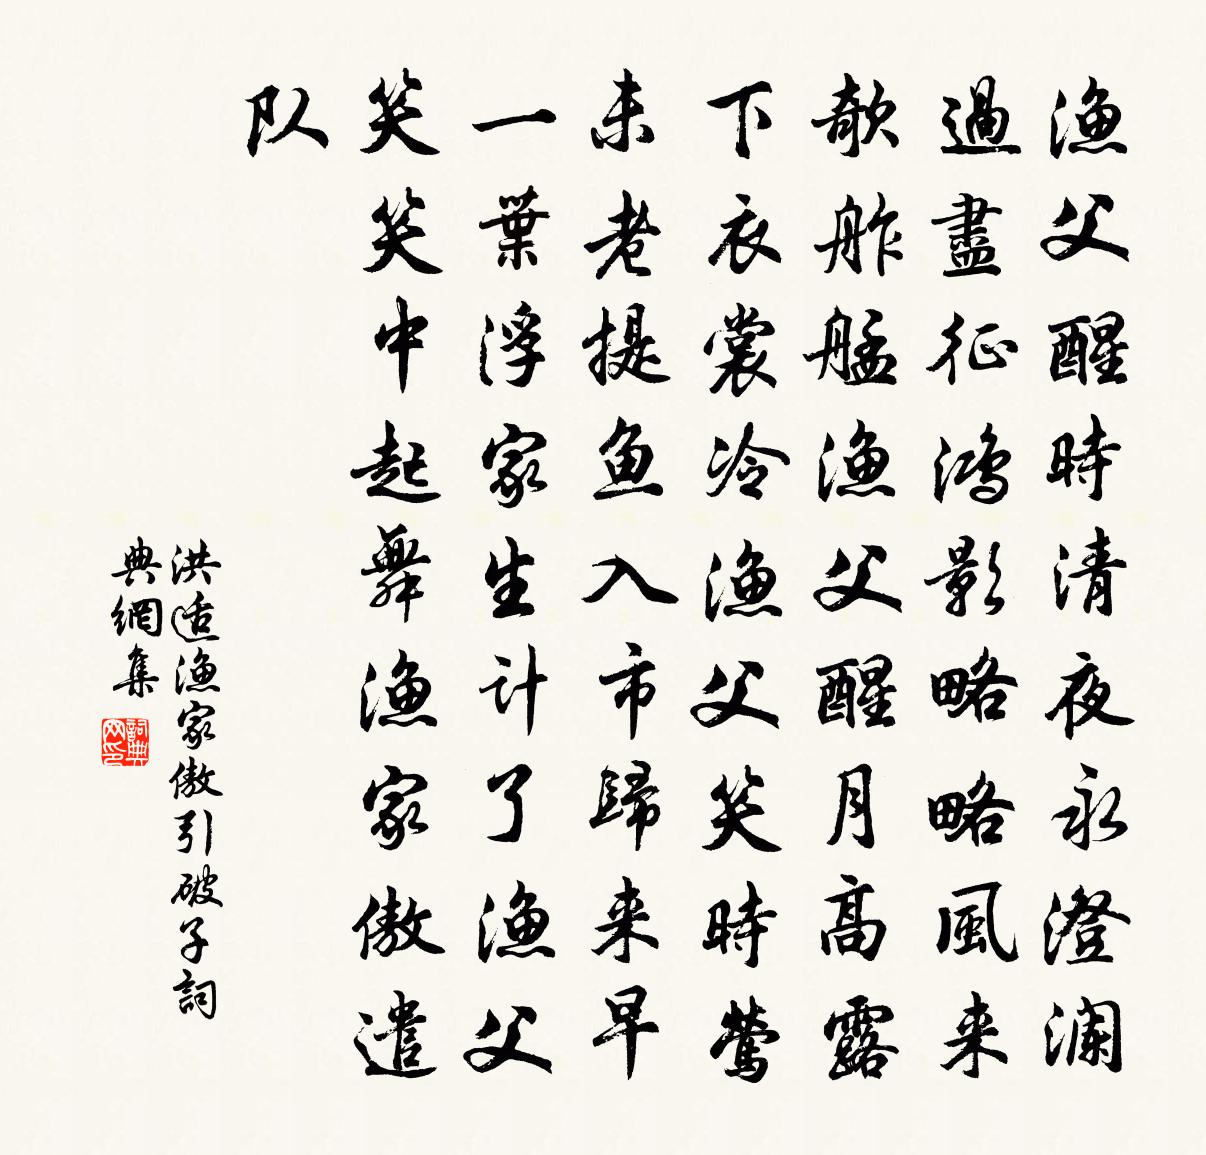 漁父醒時清夜永澄瀾
過盡征鴻影略略風来
欹舴艋漁父醒月高露
下衣裳冷漁父笑時鶯
未老提魚入市歸来早
一葉浮家生計了漁父
笑笑中起舞漁家傲遣
队
洪适漁家傲引破子詞
典網集
詞典网印